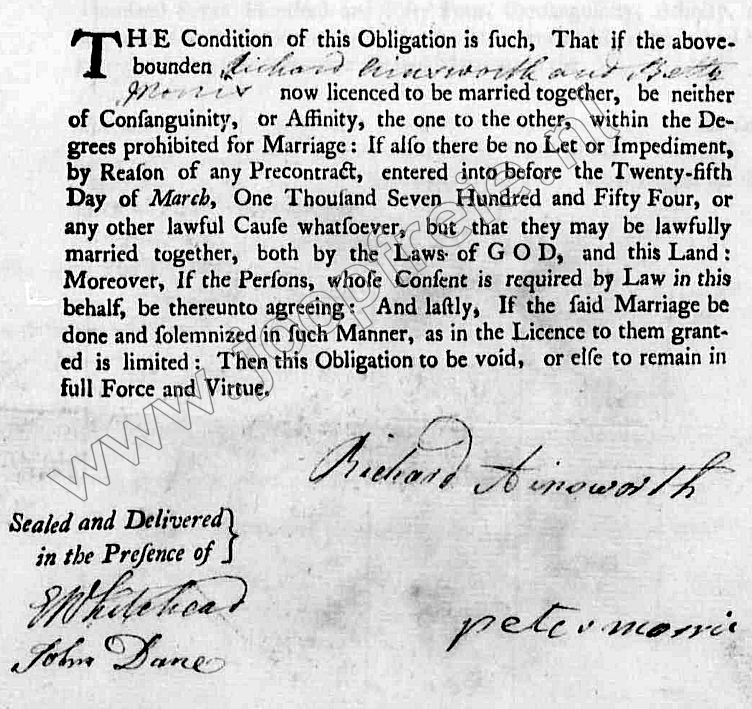 THE Condition of this Obligation is ſuch, That if the above-
bounden Richard Ainsworth and Betty
Morris now licenced to be married together, be neither
of Conſanguinity, or Affinity, the one to the other, within the De-
grees prohibited for Marriage: If alſo there be no Let or Impediment,
by Reaſon of any Precontract, entered into before the Twenty-fifth
Day of March, One Thouſand Seven Hundred and Fifty Four, or
any other lawful Cauſe whatſoever, but that they may be lawfully
married together, both by the Laws of GOD, and this Land:
Moreover, If the Perſons, whoſe Conſent is required by Law in this
behalf, be thereunto agreeing: And laſtly, If the ſaid Marriage be
done and ſolemnized in ſuch Manner, as in the Licence to them grant-
ed is limited: Then this Obligation to be void, or elſe to remain in
full Force and Virtue.
Richard Ainsworth
Sealed and Delivered
in the Preſence of
EWhitehead
John Dane
peter morris
www.joopfreie.nl